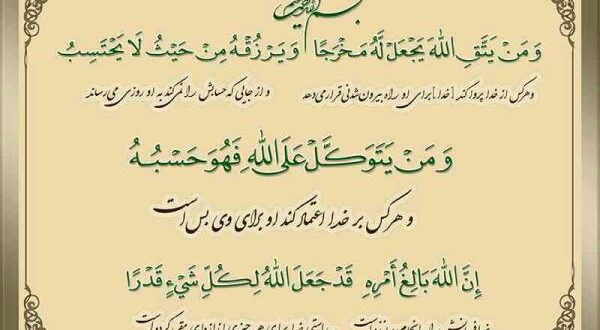 بسم الله الرحمن الرحیم
وَ مَنْ يَتَّقِ اللهَ يَجْعَلْ لَهُ مَخْرَجًا وَ يَرْزُقْهُ مِنْ حَيْثُ لَا يَحْتَسِبُ
و هر کس از خدا پروا کند [خدا] برای او راه بیرون شدنی قرار می‌دهد و از جایی که حسابش را نمی‌کند به او روزی می‌رساند
وَ مَنْ يَتَوَكَّلْ عَلَى اللهِ فَهُوَ حَسْبُهُ
و هر کس بر خدا اعتماد کند او برای وی بس است
إِنَّ اللهَ بَالِغُ أَمْرِهِ قَدْ جَعَلَ اللهُ لِكُلِّ شَيْءٍ قَدْرًا